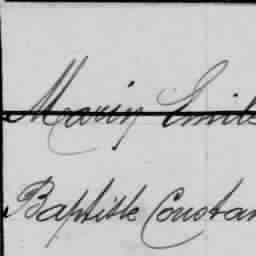 Marin Emile
Baptiste Constan